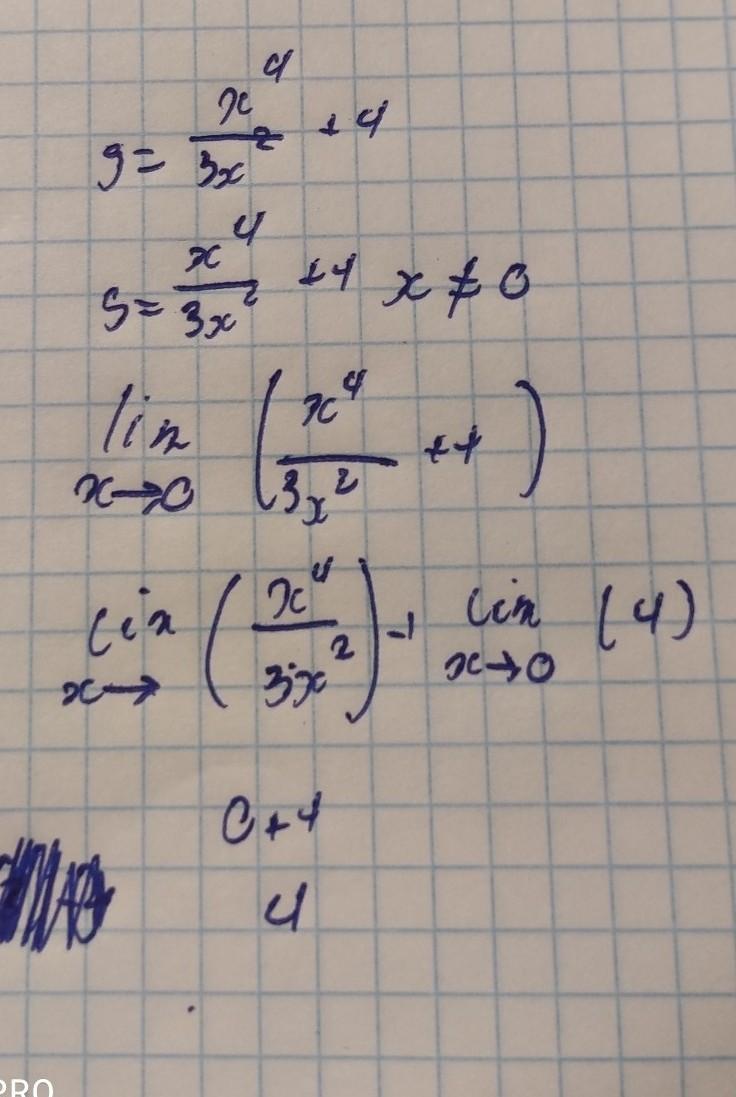 y = x^4 / 3x^2 + 4
y = x^4 / 3x^2 + 4 x ≠ 0
lim x→0 ( x^4 / 3x^2 + 4 )
lim x→ ( x^4 / 3x^2 ) + lim x→0 (4)
0 + 4
4
PRO